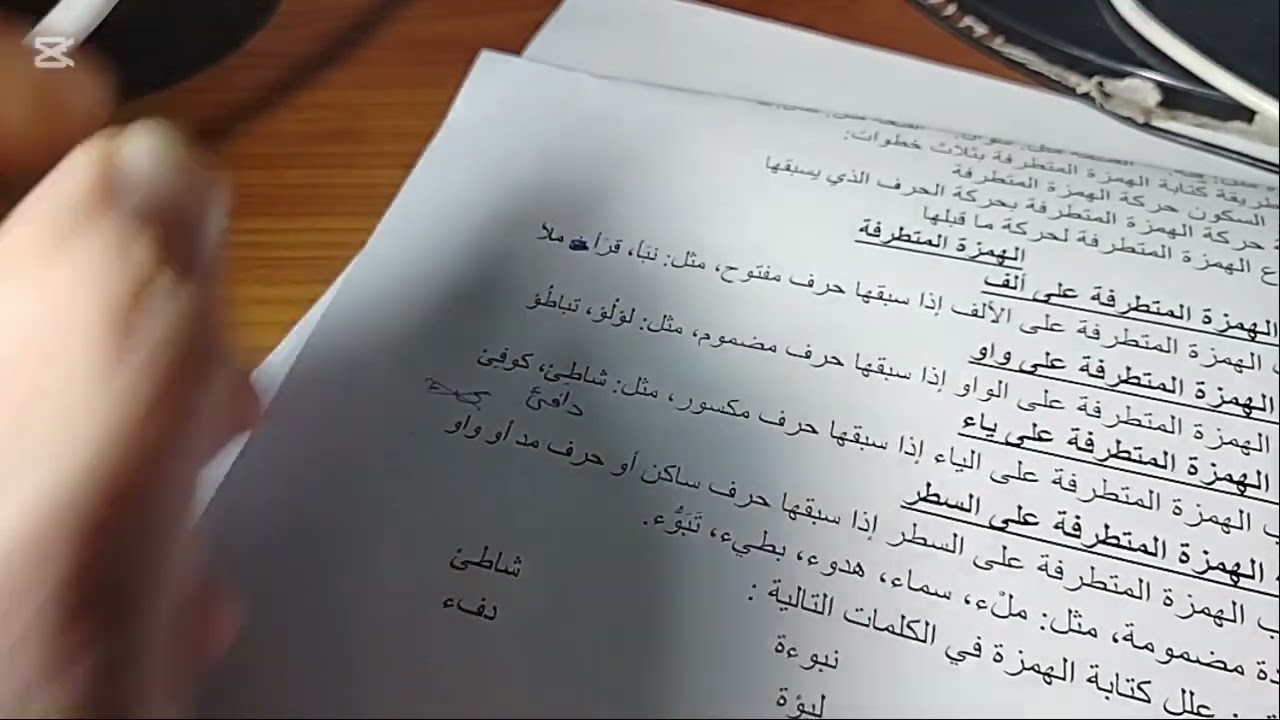 طريقة كتابة الهمزة المتطرفة بثلاث خطوات:
السكون حركة الهمزة المتطرفة
حركة الهمزة المتطرفة بحركة الحرف الذي يسبقها
الهمزة المتطرفة لحركة ما قبلها
الهمزة المتطرفة
الهمزة المتطرفة على ألف
الهمزة المتطرفة على الألف إذا سبقها حرف مفتوح، مثل: نبَأ، قرَأ ملأ
الهمزة المتطرفة على واو
الهمزة المتطرفة على الواو إذا سبقها حرف مضموم، مثل: لؤلُؤ، تباطُؤ
الهمزة المتطرفة على ياء
الهمزة المتطرفة على الياء إذا سبقها حرف مكسور، مثل: شاطِئ، كوفِئ
دافئ
الهمزة المتطرفة على السطر
الهمزة المتطرفة على السطر إذا سبقها حرف ساكن أو حرف مد أو واو
مضمومة، مثل: ملْء، سماء، هدوء، بطيء، تَبَوُّء.
علل كتابة الهمزة في الكلمات التالية :
نبوءة شاطئ
لبؤة دفء